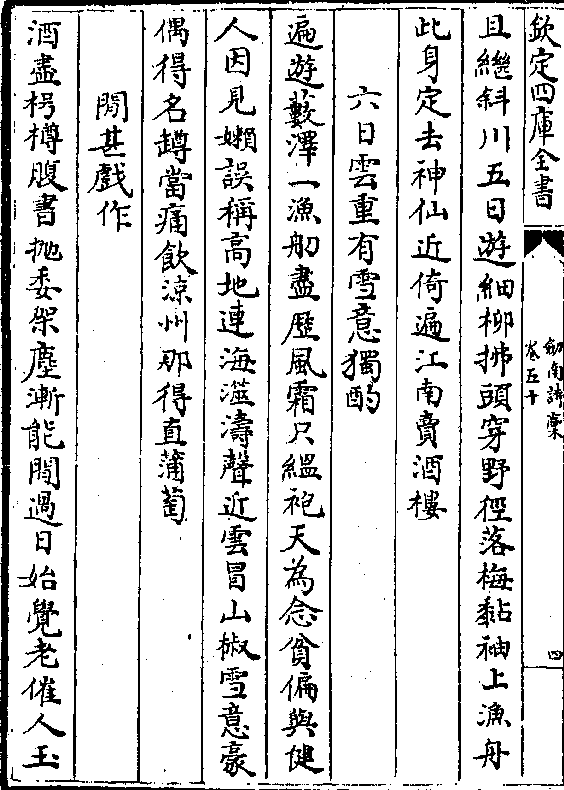 欽定四庫全書
劍南詩稾
卷五十
四
且繼斜川五日遊細柳拂頭穿野徑落梅黏袖上漁舟
此身定去神仙近倚遍江南賣酒樓
六日雲重有雪意獨酌
遍遊藪澤一漁舠盡歷風霜只縕袍天為念貧偏與健
人因見嬾誤稱高地連海澨濤聲近雲冒山椒雪意豪
偶得名罇當痛飲涼州那得直蒲萄
閒甚戲作
酒盡枵樽腹書抛委架塵漸能閒過日始覺老催人玉